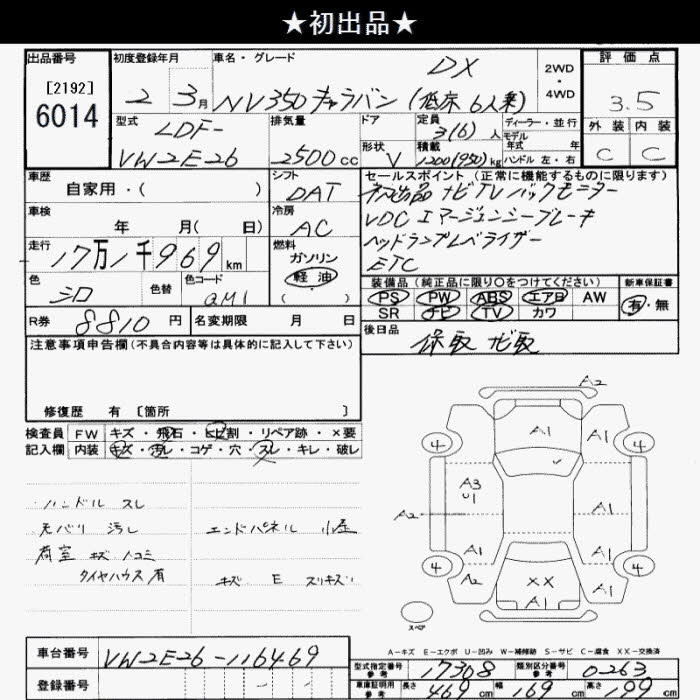 ★初出品★
出品番号 初度登録年月 車名・グレード 評価点
[2192] 6014 2 3月 NV350キャラバン DX (低床 6人乗) 2WD・4WD 3.5
型式 排気量 ドア 定員 3(6)人 ディーラー・並行 外装 内装
LDF- モデル年式 年式
VW2E26 2500cc 形状 V 積載 1200(950)kg ハンドル 左・右 C C
車歴 シフト セールスポイント(正常に機能するものに限ります)
自家用・( ) DAT 初出品 ナビTV バックモニター
車検 冷房 VDC エマージェンシーブレーキ
年 月( 日) AC ヘッドランプレベライザー
走行 燃料 ETC
17万1千969km ガソリン 軽油 ( )
装備品(純正品に限り○をつけてください) 新車保証書
色 色替 色コード PS PW ABS エアB AW 有・無
シロ QM1 SR ナビ TV カワ
R券 8810円 名変期限 月 日 後日品
保取 ナビ取
注意事項申告欄(不具合内容等は具体的に記入して下さい)
修復歴 有 [箇所 ]
検査員 FW キズ・飛石・ヒビ割・リペア跡・×要
記入欄 内装 キズ・汚レ・コゲ・穴・スレ・キレ・破レ
ハンドル スレ
天バリ 汚レ エンドパネル 小歪
荷室 キズ ヘコミ
タイヤハウス 有 キズ E スリキズ
A2
A1 A1
4 4
A3
U1
A2 A1
A1 A1
4 4
A2 XX A1
A1
スペア
A-キズ E-エクボ U-凹み W-補修跡 S-サビ C-腐食 XX-交換済
車台番号 VW2E26-116469
型式指定番号 参考 17308 類別区分番号 参考 0263
登録番号
車庫証明用 参考 長さ 469cm 幅 169cm 高さ 199cm